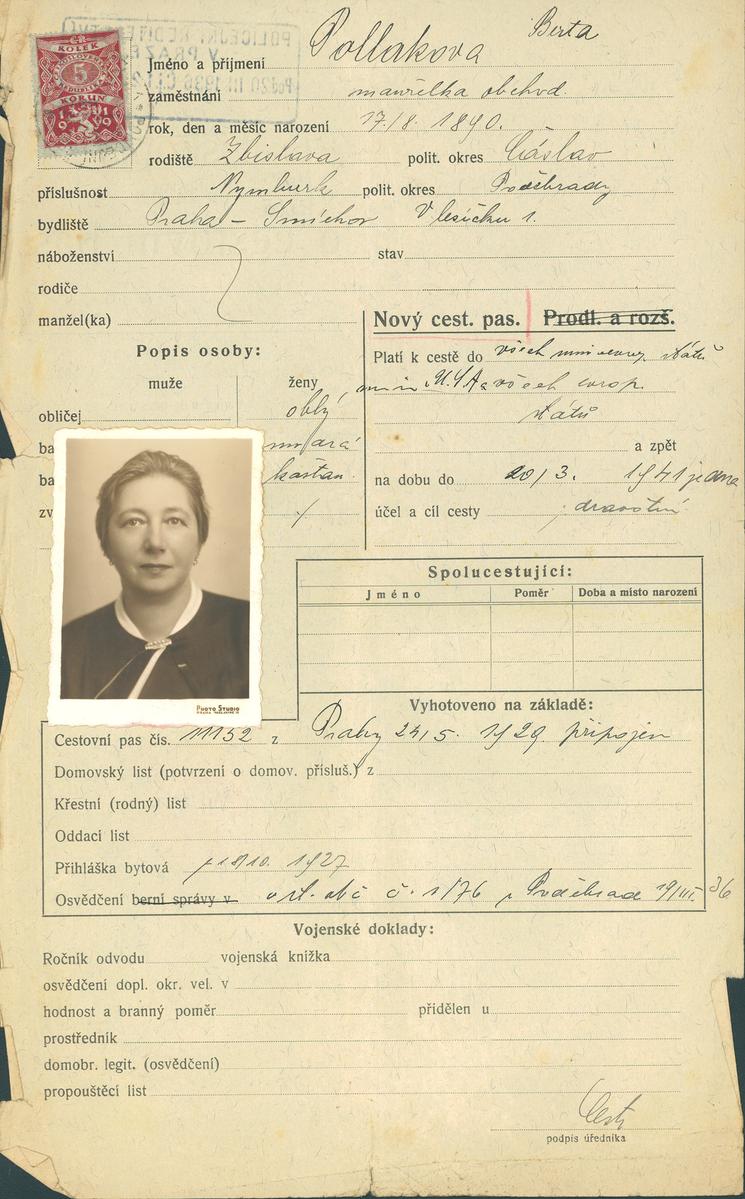 Pollakova Berta
Jméno a příjmení
ČR
KOLEK
5
KORUN
1919
POLICEJNÍ ŘEDITELSTVÍ
V PRAZE
zaměstnání manželka obchod.
rok, den a měsíc narození 17/8. 1890.
rodiště Zbislava polit. okres Čáslav
příslušnost Nymburk polit. okres Poděbrady
bydliště Praha – Smíchov V lesíčku 1.
náboženství stav
rodiče
manžel(ka)
Nový cest. pas. Prodl. a rozš.
Popis osoby:
muže ženy
obličej oblý
ba
ba kaštan.
zv
Platí k cestě do všech států
U.S.A a všech evrop.
států
a zpět
na dobu do 20/3. 1941
účel a cíl cesty zdravotní
Spolucestující:
Jméno Poměr Doba a místo narození
PHOTO STUDIO
Vyhotoveno na základě:
Cestovní pas čís. 11152 z Prahy 24/5. 1929. připojen
Domovský list (potvrzení o domov. přísluš.) z
Křestní (rodný) list
Oddací list
Přihláška bytová 18/10. 1927
Osvědčení berní správy v o st. obč č. 1/76 Poděbrad 19/III. 36
Vojenské doklady:
Ročník odvodu vojenská knížka
osvědčení dopl. okr. vel. v
hodnost a branný poměr přidělen u
prostředník
domobr. legit. (osvědčení)
propouštěcí list
podpis úředníka